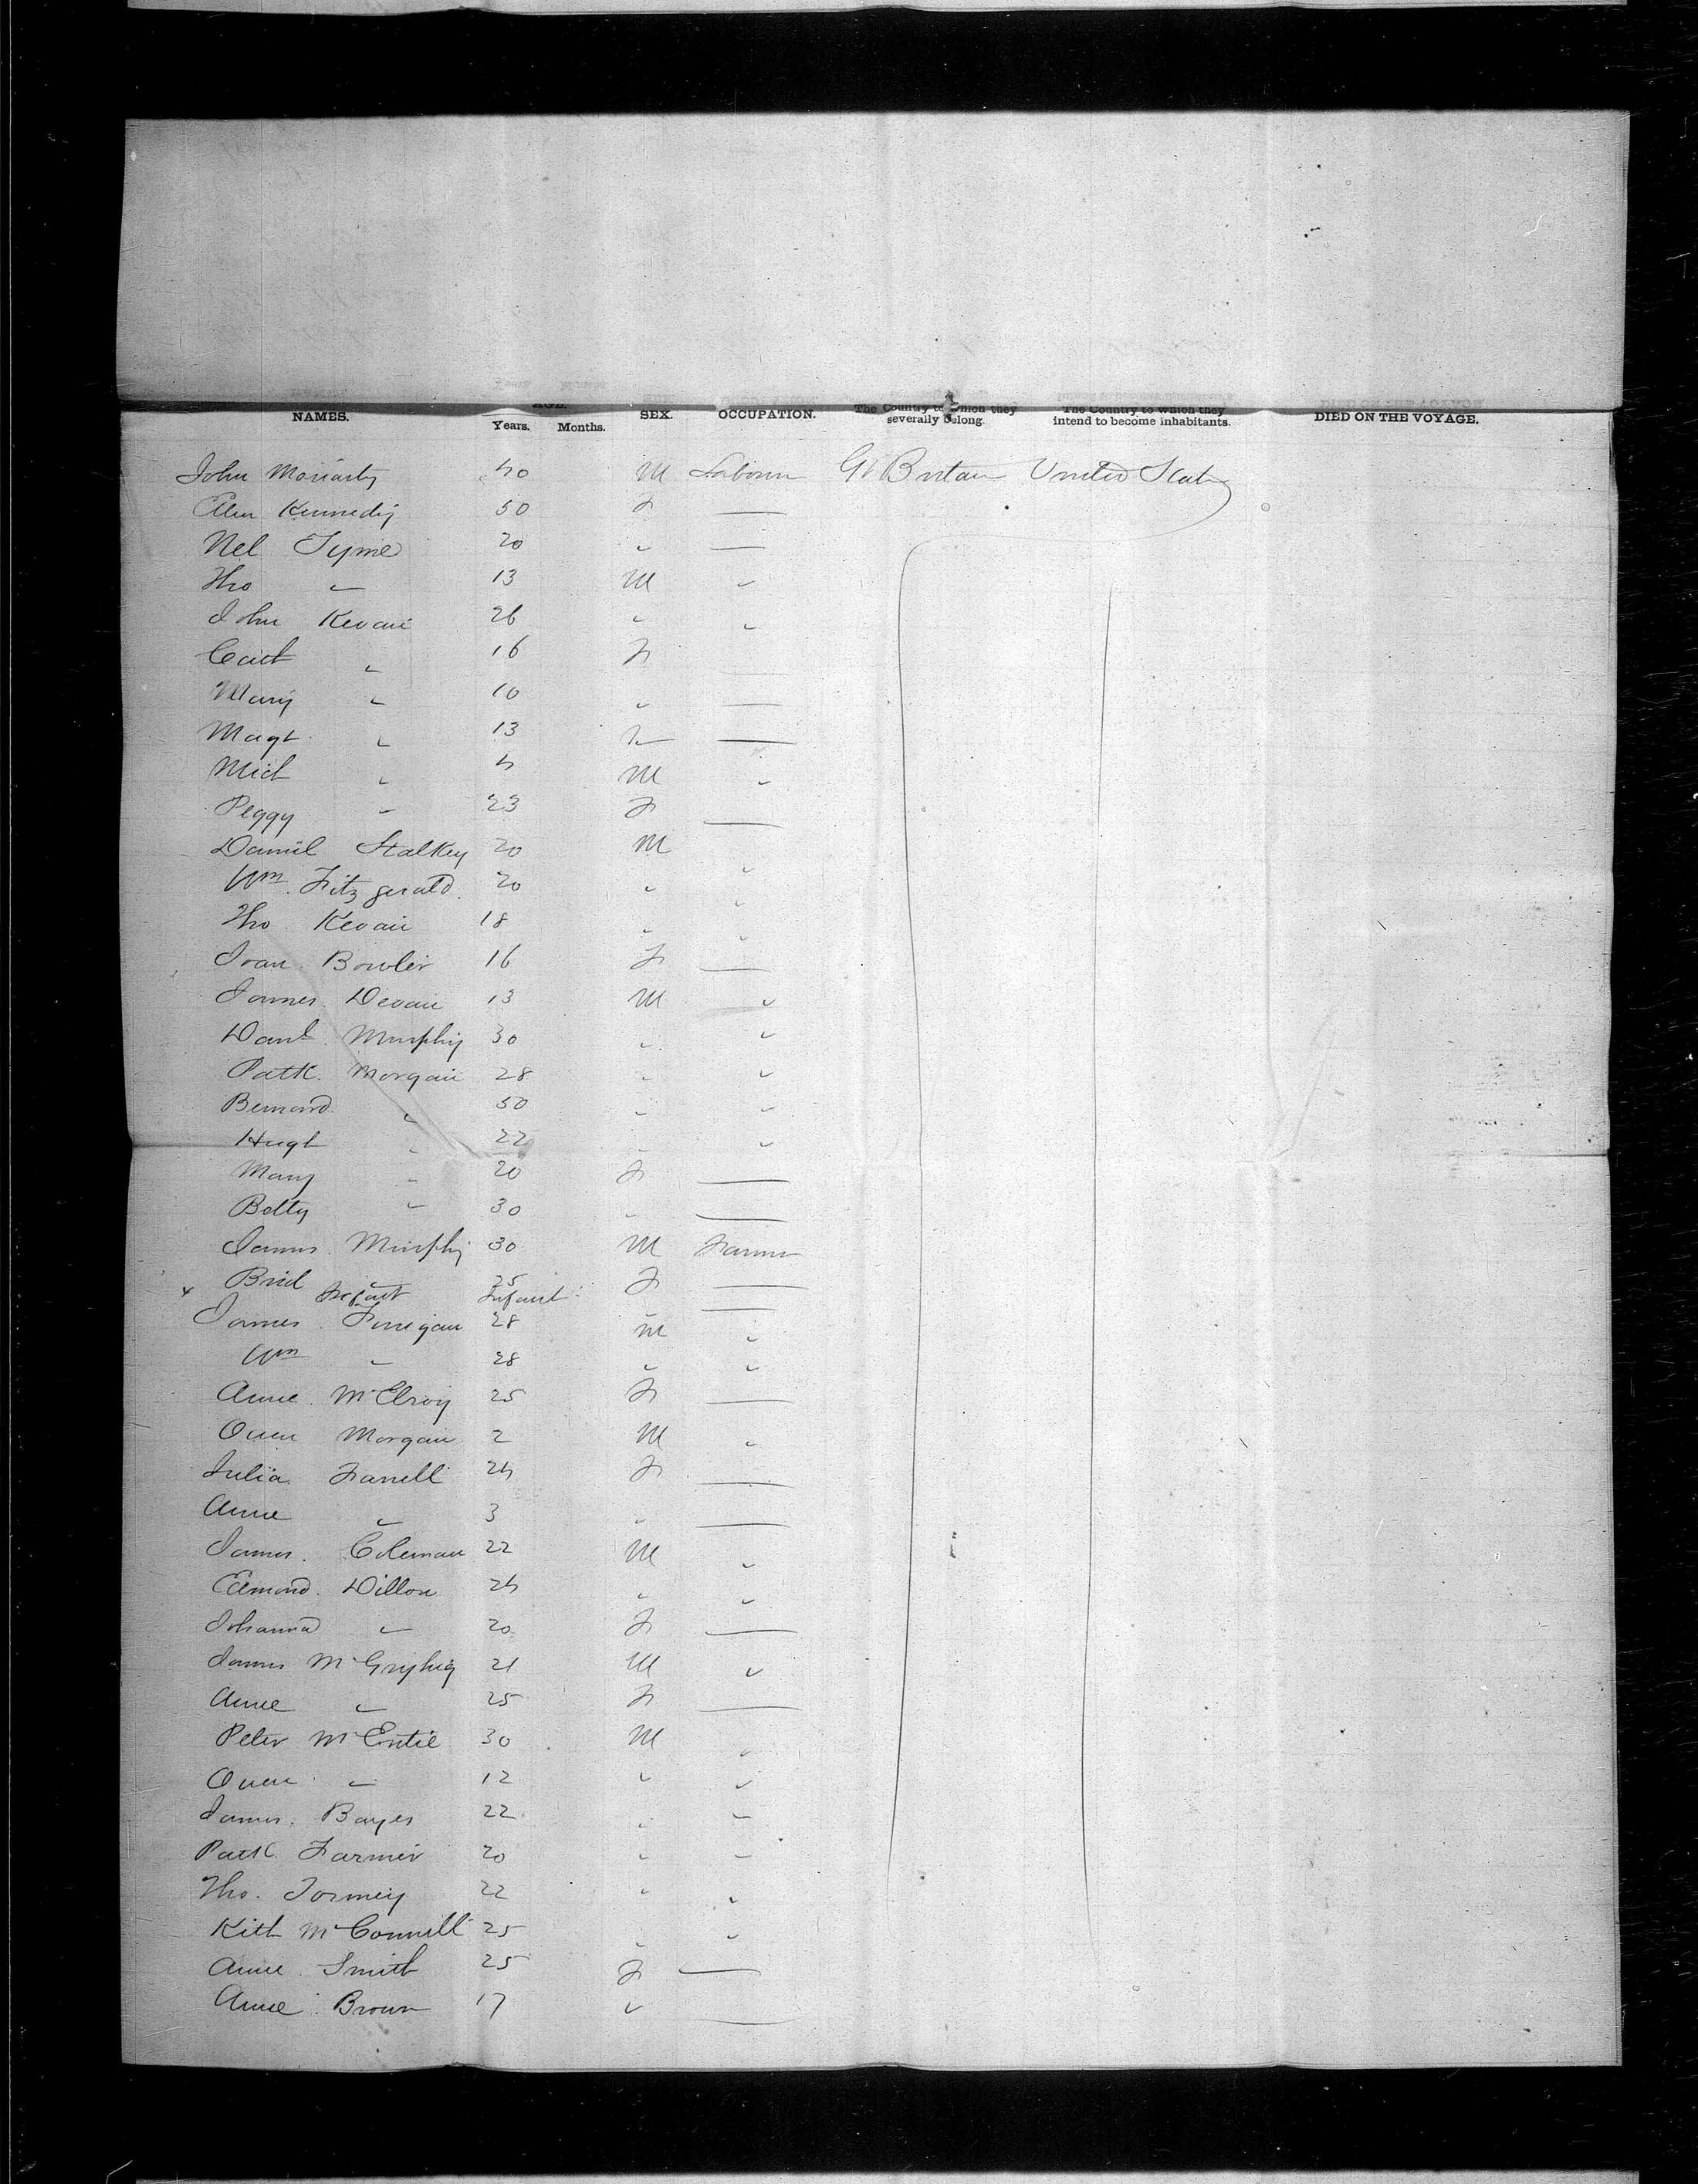 NAMES. AGE. Years. Months. SEX. OCCUPATION. The Country to which they severally belong. The Country to which they intend to become inhabitants. DIED ON THE VOYAGE.
John Moriarty 40 M Labourer Gt Britain United States
Ellen Kennedy 50 F —
Nel Tyme 20 " —
Tho " 13 M "
John Kevane 26 " "
Cait " 16 F —
Mary " 10 " —
Magt " 13 F —
Mich " 4 M "
Peggy " 23 F —
Daniel Stalkey 20 M "
Wm. Fitzgerald 20 " "
Tho Kevane 18 " "
Joan Bowler 16 F —
James Devane 13 M "
Danl. Murphy 30 " "
Patk. Morgan 28 " "
Bernard " 50 " "
Hugh " 22 " "
Mary " 20 F —
Betty " 30 " —
James Murphy 30 M Farmer
Brid " 25 F —
x Infant Infant " —
James Finigan 28 M "
Wm " 28 " "
Anne McElroy 25 F —
Owen Morgan 2 M "
Julia Farrell 24 F —
Anne " 3 " —
James Coleman 22 M "
Edmond Dillon 24 " "
Johanna " 20 F —
James 21 M "
Anne " 25 F —
Peter McEntie 30 M "
Owen " 12 " "
James Bayes 22 " "
Patk Farmer 20 " "
Tho. Tormey 22 " "
Kitt McConnell 25 " "
Anne Smith 25 F —
Anne Brown 17 " —